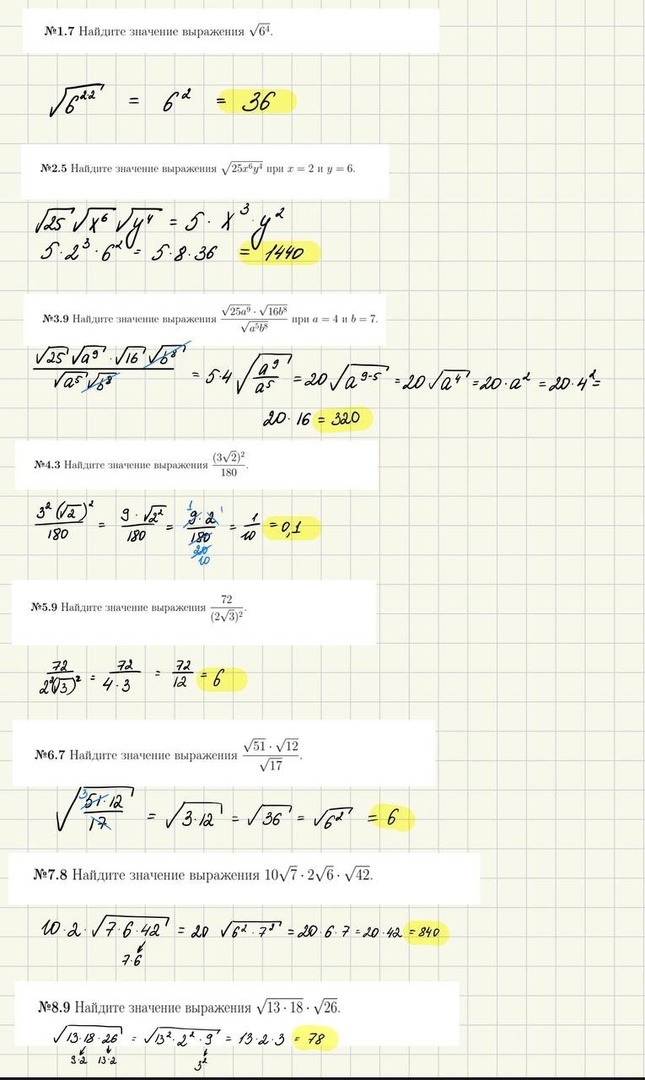 №1.7 Найдите значение выражения √6⁴.
√6²·² = 6² = 36
№2.5 Найдите значение выражения √25x⁶y⁴ при x = 2 и y = 6.
√25 √x⁶ √y⁴ = 5 · x³ · y²
5 · 2³ · 6² = 5 · 8 · 36 = 1440
№3.9 Найдите значение выражения (√25a⁹ · √16b⁸)/√a⁵b⁸ при a = 4 и b = 7.
(√25 √a⁹ · √16 √b⁸)/(√a⁵ √b⁸) = 5·4 √(a⁹/a⁵) = 20 √a⁹⁻⁵ = 20 √a⁴ = 20 · a² = 20 · 4² =
20 · 16 = 320
№4.3 Найдите значение выражения (3√2)²/180.
3²(√2)²/180 = 9 · √2²/180 = 9 · 2/180 = 1/10 = 0,1
1 1
20
10
№5.9 Найдите значение выражения 72/(2√3)².
72/2²(√3)² = 72/4·3 = 72/12 = 6
№6.7 Найдите значение выражения (√51 · √12)/√17.
√(51·12/17) = √3·12 = √36 = √6² = 6
3
№7.8 Найдите значение выражения 10√7 · 2√6 · √42.
10 · 2 · √7·6·42 = 20 √6² · 7² = 20 · 6 · 7 = 20 · 42 = 840
7·6
№8.9 Найдите значение выражения √13 · 18 · √26.
√13·18·26 = √13² · 2² · 9 = 13 · 2 · 3 = 78
9·2 13·2 3²